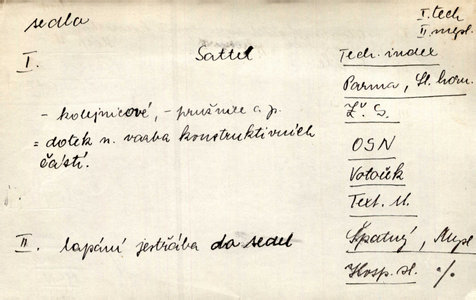 sedla
I. tech
II. mysl.
I. Sattel
Tech. index
Parma, St. horn.
- kolejnicové, - pružnice a p.
= dotek n. vazba konstruktivních
částí.
OSN
Votoček
Text. M.
II. lapání jestřába do sedel
Špatný, Mysl
Hosp. sl. %